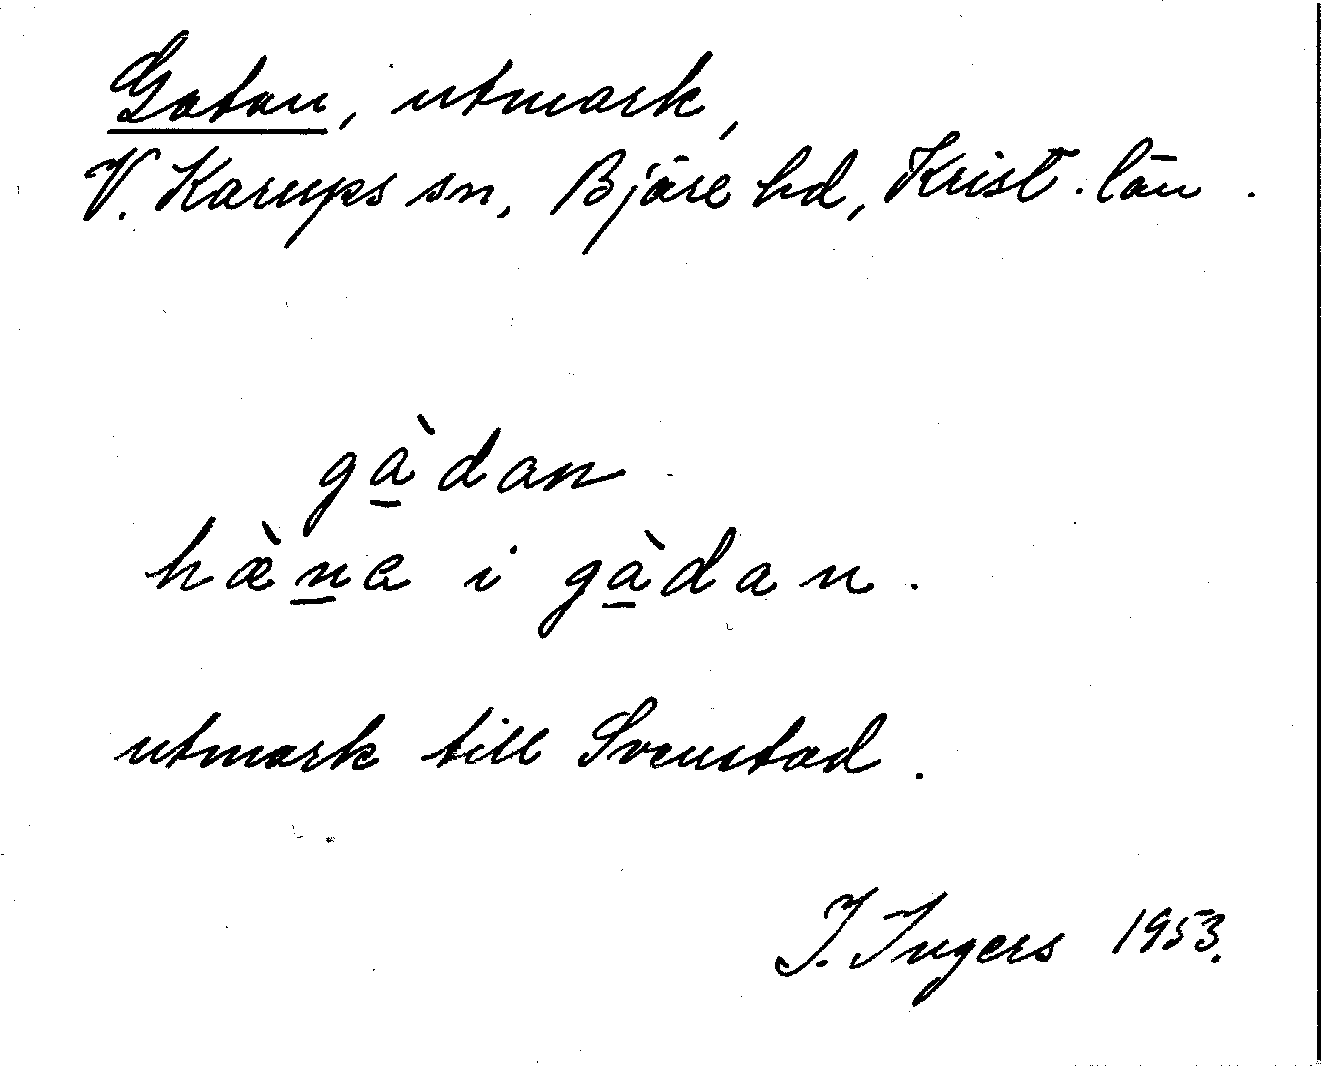 Gatan, utmark,
V. Karups sn, Bjäre hd, Krist. län.
gà̱dan
hæ̀n̲a i gà̱dan.
utmark till Svenstad.
I. Ingers 1953.